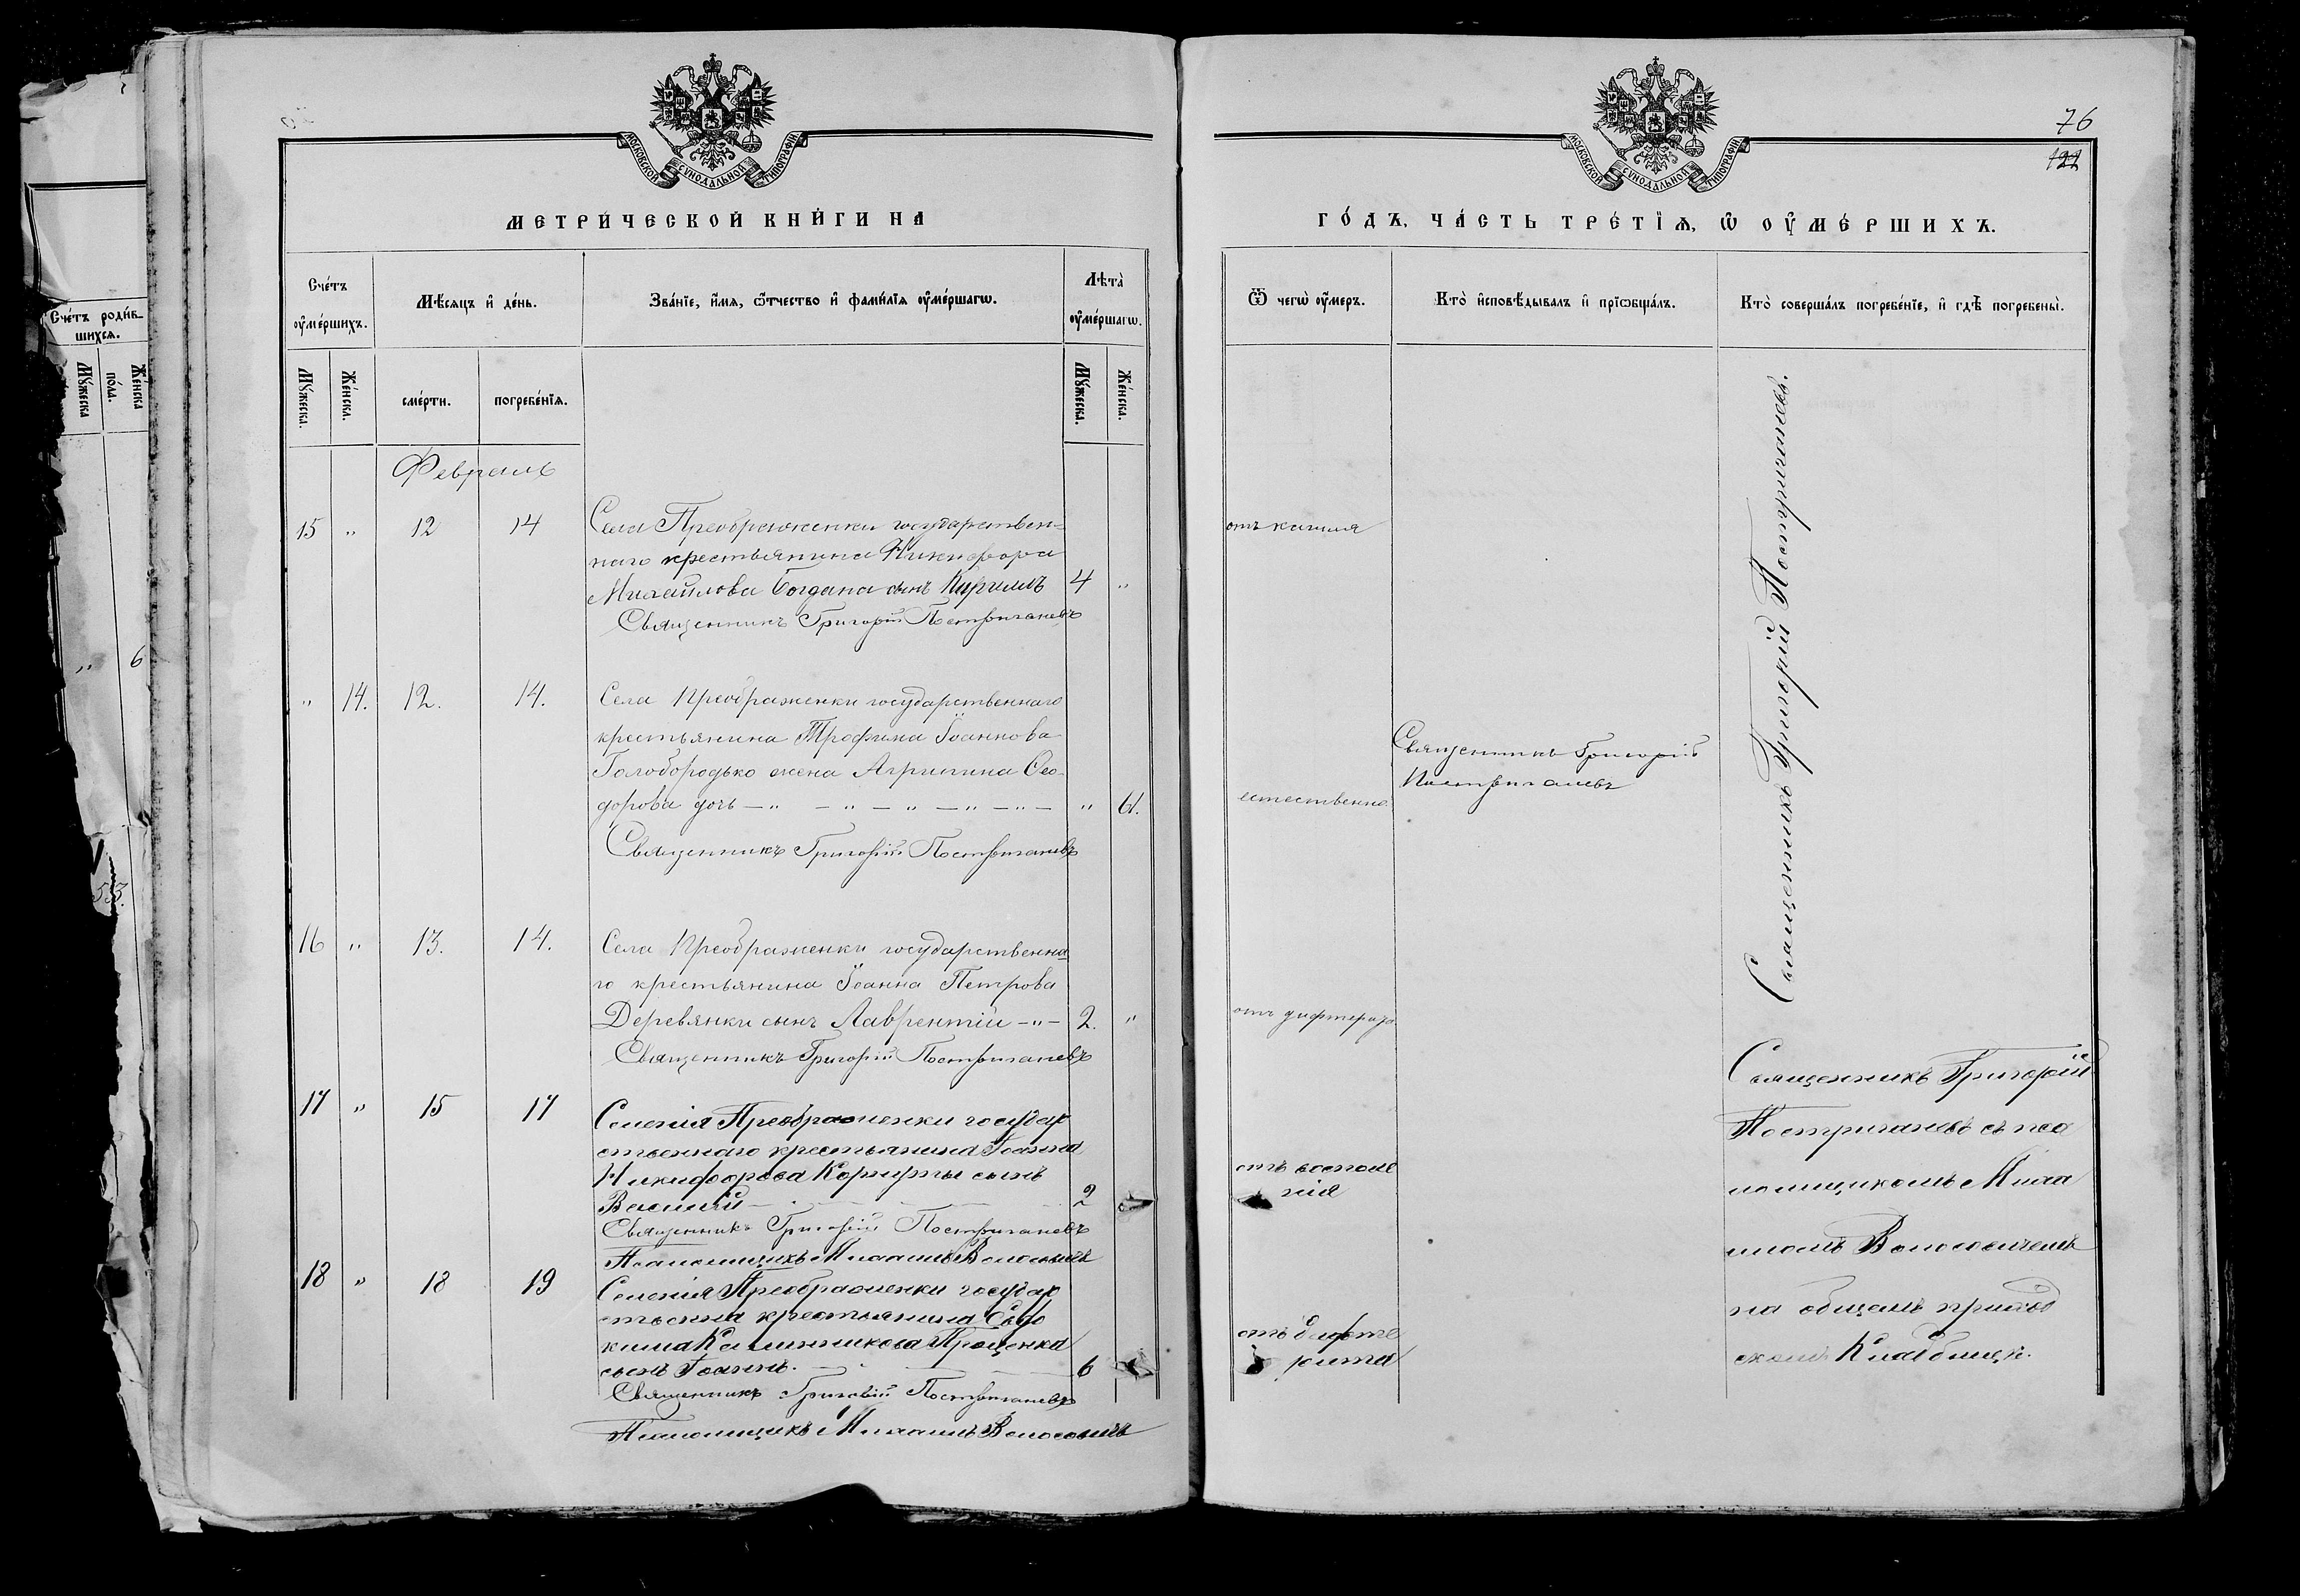 МОСКОВСКОЙ СѴНОДАЛЬНОЙ ТИПОГРАФІИ
МЕТРИ́ЧЕСКОЙ КНИ́ГИ НА
Сче́тъ роди́в-
шихся.
Му́жеска
по́ла.
Же́нска
„ 6
53.
Сче́тъ
ᲂу҆ме́ршихъ.
Мѣ́сяцъ и҆ де́нь.
Зва́нїе, и҆́мя, ѻ҆́тчество и҆ фами́лїя ᲂу҆ме́ршагѡ.
Лѣ́та
ᲂу҆ме́ршагѡ.
Му́жеска.
Же́нска.
сме́рти.
погребе́нїя.
Му́жеска.
Же́нска.
Февраль
15 „ 12 14 Села Преображенки государствен-
наго крестьянина Никифора
Михайлова Богдана сынъ Кирилъ 4 „
Священникъ Григорій Постригачевъ
„ 14. 12. 14. Села Преображенки государственнаго
крестьянина Трофима Іоаннова
Голобородько жена Агрипина Ѳео-
дорова дочь — „ — „ — „ — „ — „ — „ 61.
Священникъ Григорій Постригачевъ
16 „ 13. 14. Села Преображенки государственна-
го крестьянина Іоанна Петрова
Деревянки сынъ Лаврентій — „ — 2. „
Священникъ Григорій Постригачевъ
17 „ 15 17 Селенія Преображенки государ
ственнаго крестьянина Іоанна
Никифорова сынъ
Василій 2
Священникъ Григорій Постригачевъ
Псаломщикъ Михаилъ Волосевичъ
18 „ 18 19 Селенія Преображенки государ
ственна крестьянина Евдо
кима Калинникова Проценка
сынъ Іоаннъ. 6
Священникъ Григорій Постригачевъ
Псаломщикъ Михаилъ Волосевичъ
76
122
МОСКОВСКОЙ СѴНОДАЛЬНОЙ ТИПОГРАФІИ
ГО́ДЪ, ЧА́СТЬ ТРЕ́ТЇѦ, Ѡ҆ ОУ҆МЕ́РШИХЪ.
Ѿ чегѡ̀ ᲂу҆́меръ.
Кто̀ и҆сповѣ́дывалъ и҆ прїѡбща́лъ.
Кто̀ соверша́лъ погребе́нїе, и҆ гдѣ̀ погребены̀.
отъ кашля
естественно
Священникъ Григорій
Постригачевъ
отъ дифтерита
отъ воспале
нія
отъ дифте
рита
Священникъ Григорій Постригачевъ.
Священникъ Григорій
Постригачевъ съ пса
ломщикомъ Миха
иломъ Волосевичемъ
на общемъ приход
скомъ Кладбищѣ.